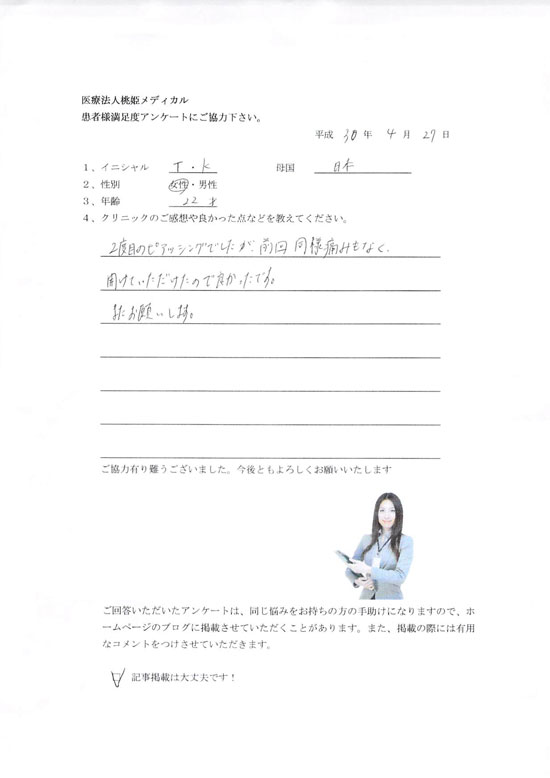 医療法人桃姫メディカル
患者様満足度アンケートにご協力下さい。
平成 30 年 4 月 27 日
1、イニシャル T・K 母国 日本
2、性別 女性・男性
3、年齢 22才
4、クリニックのご感想や良かった点などを教えてください。
2度目のピアッシングでしたが、前回同様痛みもなく、
開けていただけたので良かったです。
またお願いします。
ご協力有り難うございました。今後ともよろしくお願いいたします
ご回答いただいたアンケートは、同じ悩みをお持ちの方の手助けになりますので、ホ
ームページのブログに掲載させていただくことがあります。また、掲載の際には有用
なコメントをつけさせていただきます。
記事掲載は大丈夫です！